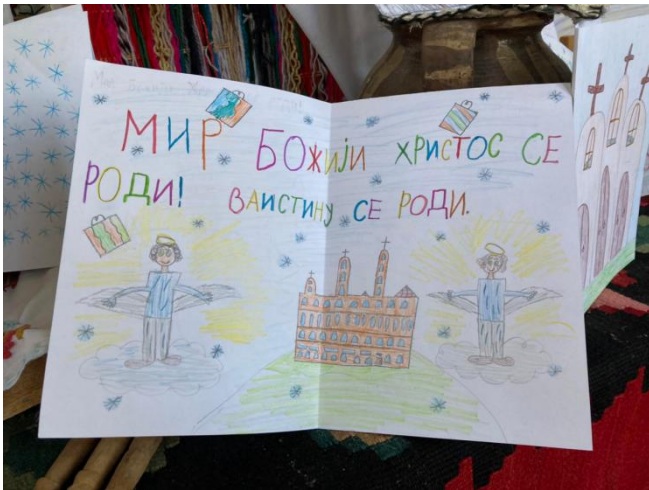 МИР БОЖИЈИ ХРИСТОС СЕ
РОДИ! ВАИСТИНУ СЕ РОДИ.